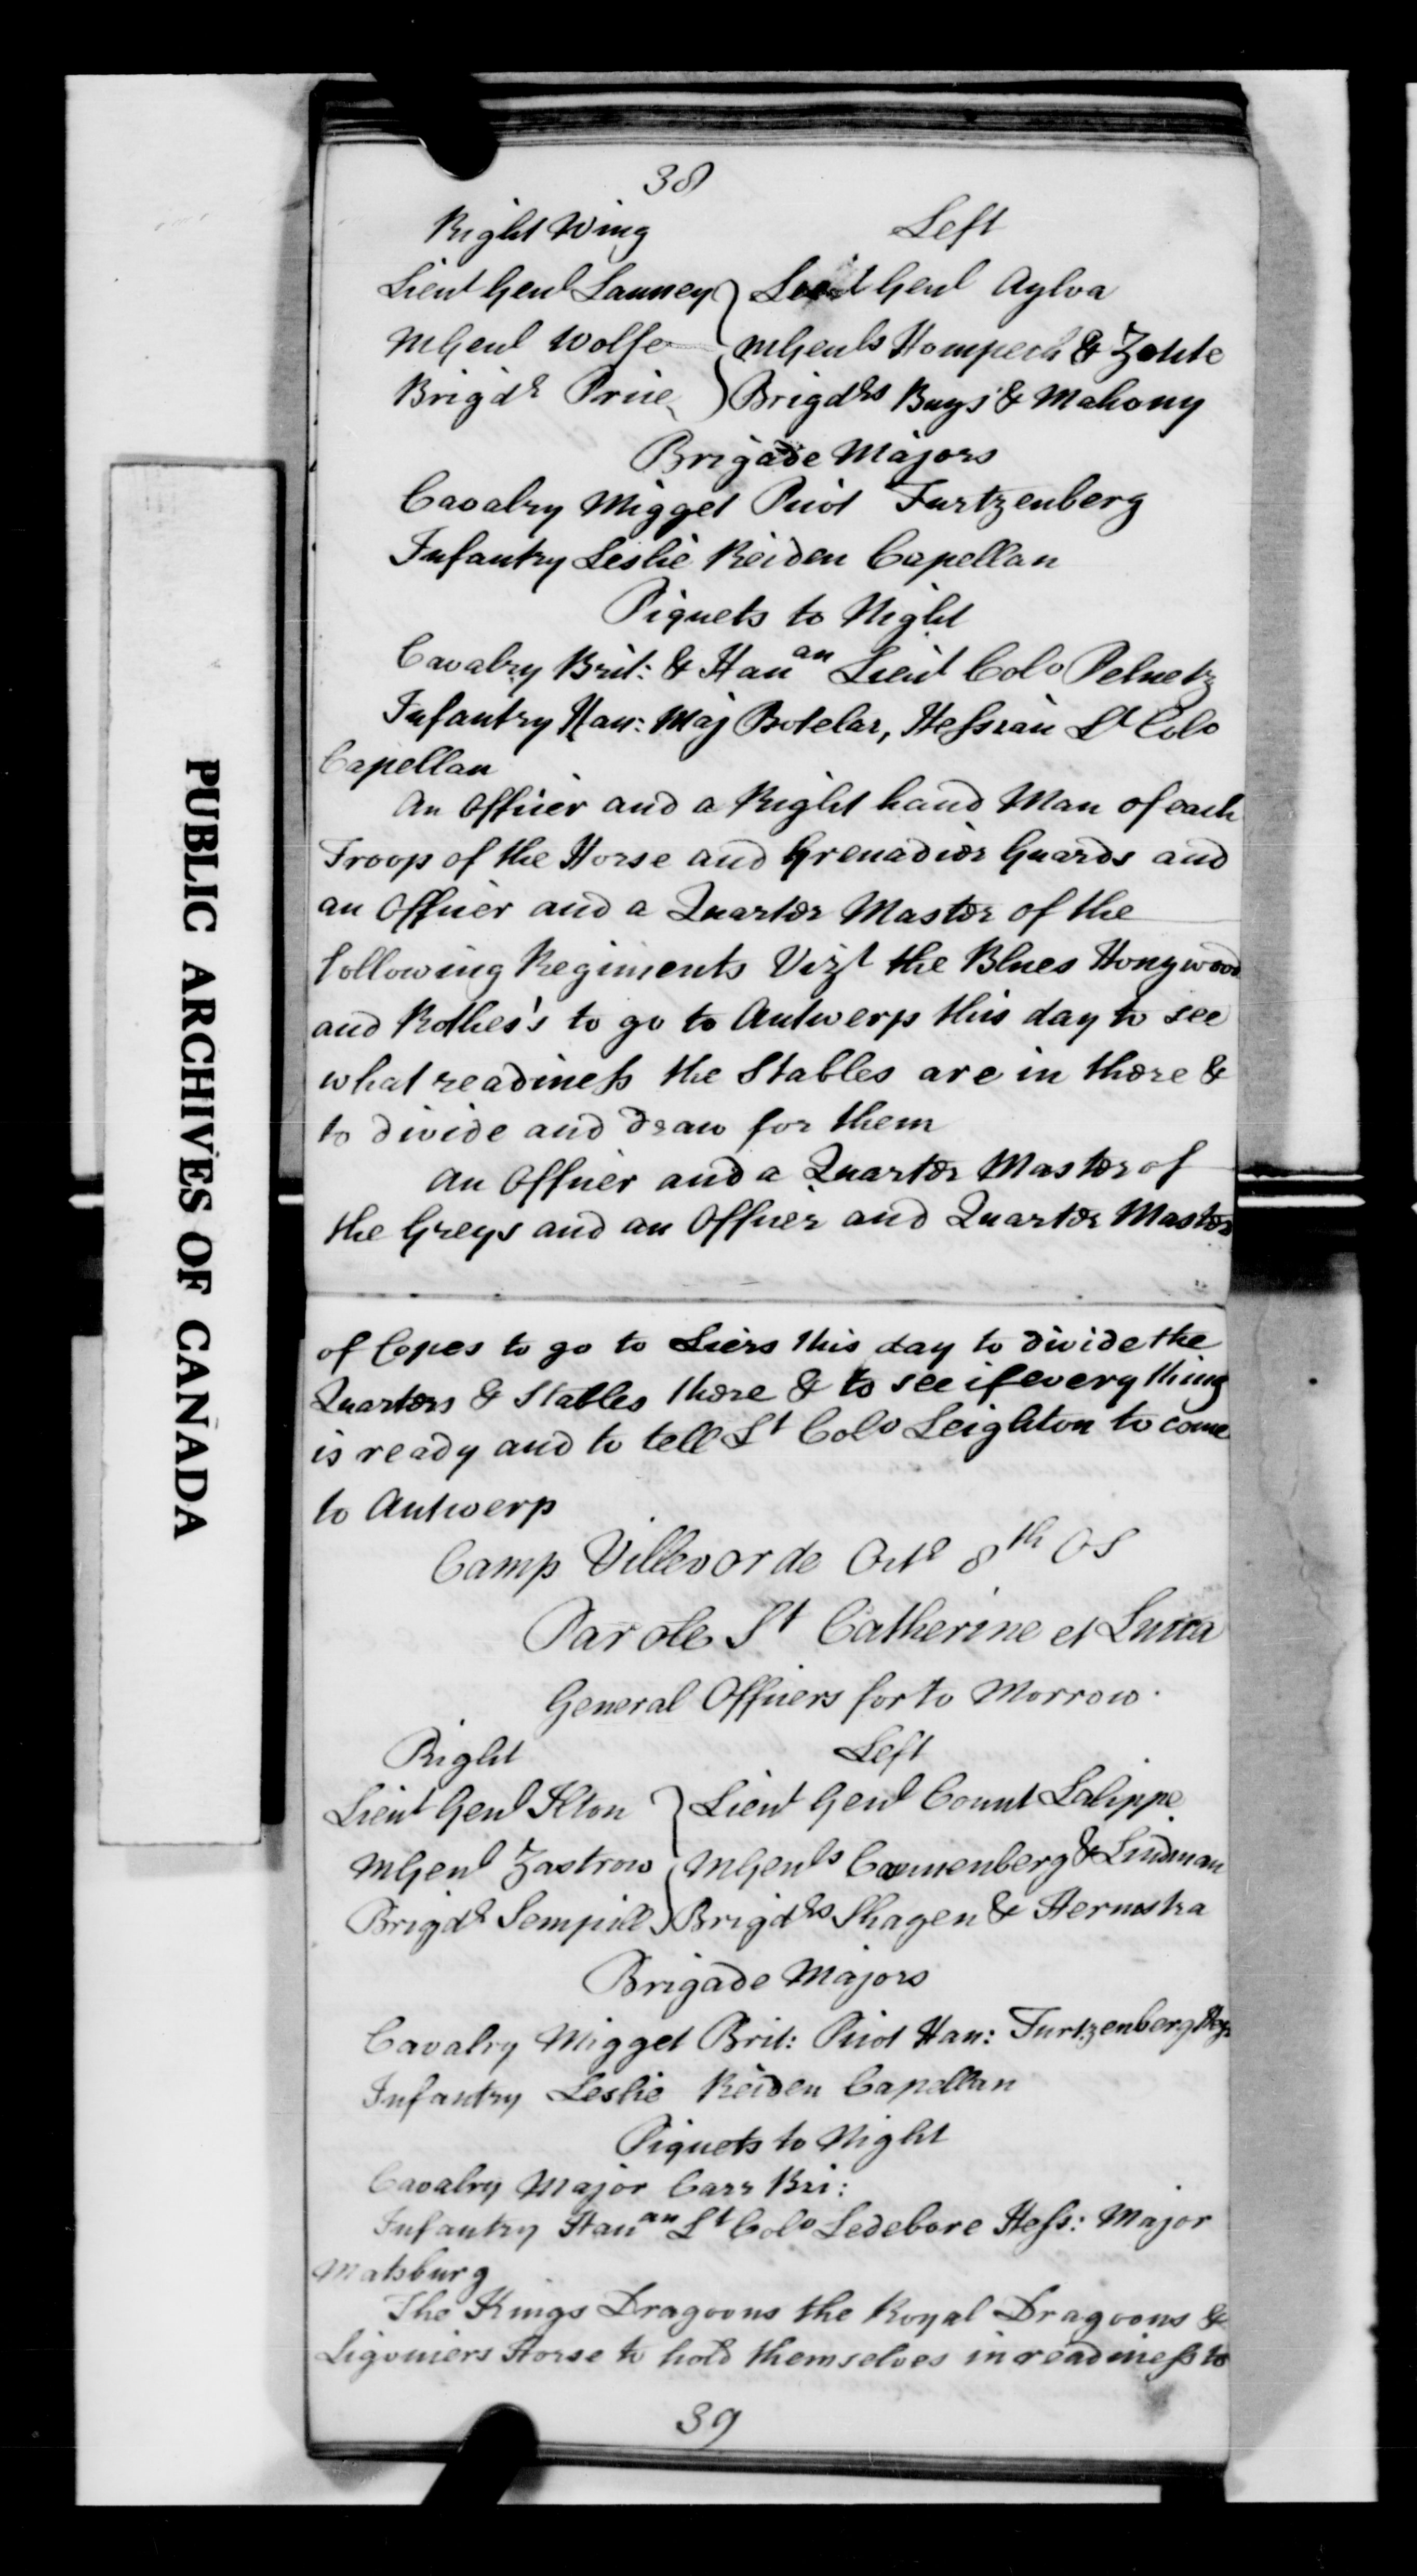 38
Right Wing Left
Lieut Genl Launey Lieut Genl Aylva
MGenl Wolfe MGenls Hompech & Zoute
Brigdr Price Brigdrs Buys & Mahony
Brigade Majors
Cavalry Migget Picot Furtzenberg
Infantry Leslie Reiden Capellan
Piquets to Night
Cavalry Brit: & Hanan Lieut Colo Pelnetz
Infantry Han: Maj Botelar, Hessian Lt Colo
Capellan
An Officer and a Right hand Man of each
Troop of the Horse and Grenadier Guards and
an Officer and a Quarter Master of the
following Regiments Vizt the Blues Honywood
and Rothes's to go to Antwerp this day to see
what readiness the Stables are in there &
to divide and draw for them
An Officer and a Quarter Master of
the Greys and an Officer and Quarter Master
of Copes to go to Liers this day to divide the
Quarters & Stables there & to see if every thing
is ready and to tell Lt Colo Leighton to come
to Antwerp
Camp Villevorde Octr 8th OS
Parole St Catherine et Lucca
General Officers for to Morrow.
Right Left
Lieut Genl Ilton Lieut Genl Count Lalippe
MGenl Zastrow MGenls Cannenberg & Lindman
Brigdr Sempill Brigdrs Shagen & Hermstra
Brigade Majors
Cavalry Migget Brit: Picot Han: Furtzenberg
Infantry Leslie Reiden Capellan
Piquets to Night
Cavalry Major Carr Bri:
Infantry Hanan Lt Colo Ledebore Hess: Major
Matsburg
The Kings Dragoons the Royal Dragoons &
Ligoniers Horse to hold themselves in readiness to
39
PUBLIC ARCHIVES OF CANADA